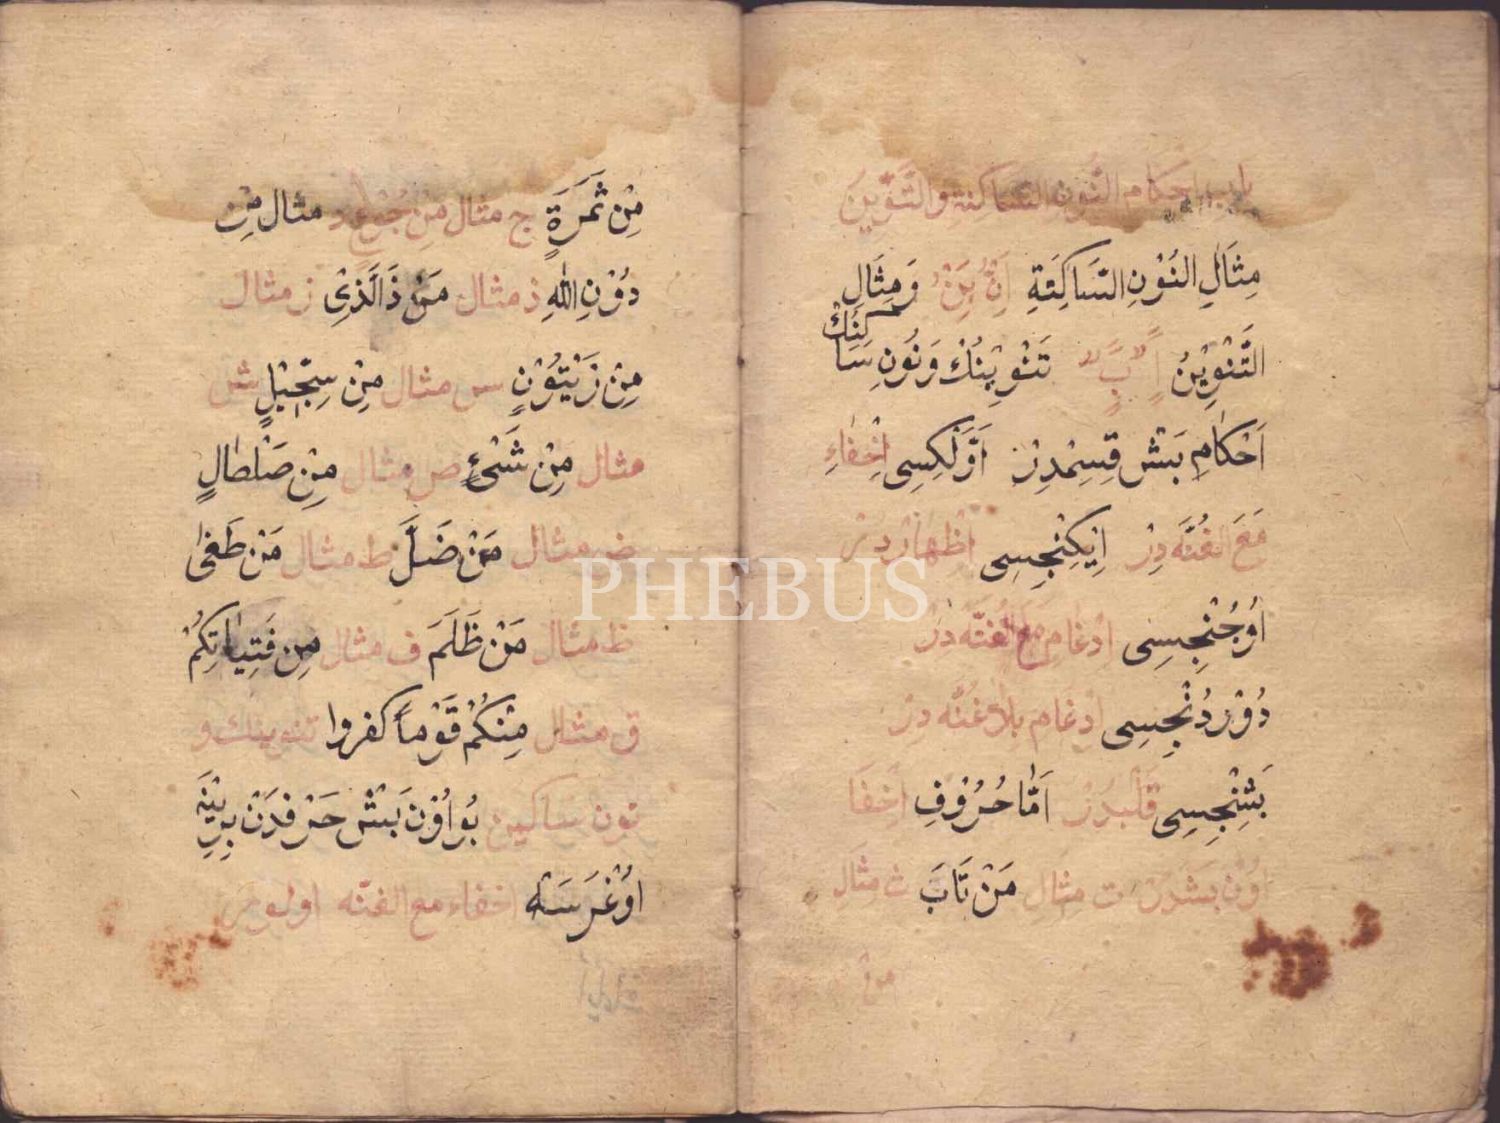 باب احكام النّون السّاكنة والتّنوين
مِثَالِ النُوْنِ السَّاكِنَةِ اَنْ بَنْ وَمِثَالِ
التَّنْوِيْنُ اً بً تَنْوِيْنُكْ وَنُونِ سَاكِنُكْ
اَحْكَامِ بَتْش قِسِمْدِرْ اَوَّلْكِسِى اِخْفَاءِ
مَعَ الغُنَّه دِرْ اِيكِنْجِسِى اظهاردر
اُوجُنْجِسِى ادغام مع الغُنَّه دِرْ
دُوْرْدُنْجِسِى ادغام بِلَا غُنَّه دِرْ
بَشِنْجِسِى قَلْبدُرْ اَمَّا حُرُوفِ اخفَا
اون بشدر ت مثال مَنْ تَابَ ث مثال
من
مِنْ ثَمَرَةٍ ج مثال مِن جُوعٍ د مثال مِن
دُوْنِ اللهِ ذ مثال مَنْ ذَالَّذِىْ ز مثال
مِنْ زَيْتُوْنٍ س مثال مِنْ سِجّيْلٍ ش
مثال مِنْ شَىْءٍ ص مثال مِنْ صَلْصَالٍ
ض مثال مَنْ ضَلَّ ط مثال مَنْ طَغٰى
ظ مثال مَنْ ظَلَمَ ف مثال مِن فَتِيٰاتِكُمْ
ق مثال مِنْكُمْ قَوْماً كفروا تنوينك و
نون ساكين بُو اُوْن بَشْ حَرْفدَنْ بِرِيْنَه
اُوْغْرَسَه اخفاء مع الغنّه اولور